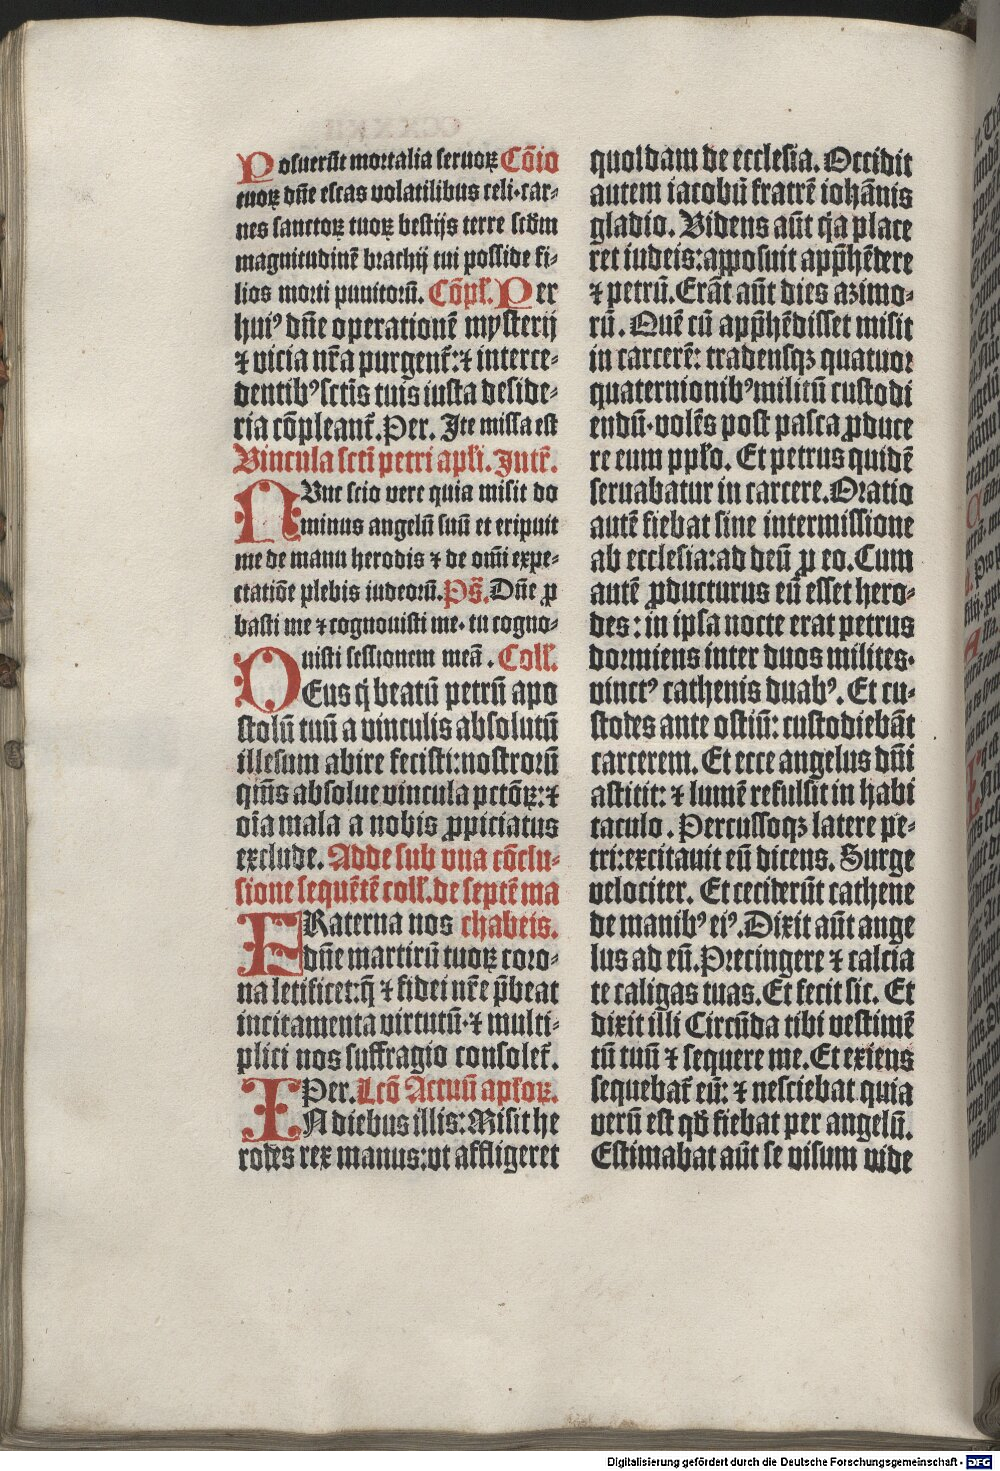 Posuerūt mortalia seruoꝝ Cōio
tuoꝝ dn̄e escas volatilibus celi·car⸗
nes sanctoꝝ tuoꝝ bestijs terre scd̄m
magnitudinē brachij tui posside fi⸗
lios morti punitoꝝ. Cōpl̄. Per
huiꝰ dn̄e operationē mysterij
⁊ vicia nr̄a purgent̄:⁊ interce⸗
dentibꝰ sctīs tuis iusta deside⸗
ria cōpleant̄. Per. Ite missa est
Vincula sctī petri apl̄i. Intr̄.
NVnc scio vere quia misit do
minus angelū suū et eripuit
me de manu herodis ⁊ de om̄i expe⸗
ctatiōe plebis iudeoꝝ. Ps̄. Dn̄e ꝓ
basti me ⁊ cognouisti me· tu cogno⸗
uisti sessionem meā. Coll̄.
DEus q̇ beatū petrū apo
stolū tuū a vinculis absolutū
illesum abire fecisti:nostroꝝ
qūs absolue vincula pctōꝝ:⁊
oīa mala a nobis ꝓpiciatus
exclude. Adde sub vna cōclu⸗
sione sequētē coll̄. de septē ma
FRaterna nos chabeis.
dn̄e martirū tuoꝝ coro⸗
na letificet:q̄ ⁊ fidei nr̄e p̄beat
incitamenta virtutū·⁊ multi⸗
plici nos suffragio consolet̄.
Per. Lcō Actuū apl̄oꝝ.
IN diebus illis: Misit he
rodes rex manus:vt affligeret
quosdam de ecclesia. Occidit
autem iacobū fratrē iohānis
gladio. Videns aūt q̇a place
ret iudeis:apposuit app̄hēdere
⁊ petrū. Erāt aūt dies azimo⸗
rū. Quē cū app̄hēdisset misit
in carcerē: tradensqꝫ quatuor
quaternionibꝰ militū custodi
endū·volēs post pasca ꝓduce
re eum ppl̄o. Et petrus quidē
seruabatur in carcere. Oratio
autē fiebat sine intermissione
ab ecclesia:ad deū ꝓ eo. Cum
autē ꝓducturus eū esset hero⸗
des: in ipsa nocte erat petrus
dormiens inter duos milites·
vinctꝰ cathenis duabꝰ. Et cu⸗
stodes ante ostiū: custodiebāt
carcerem. Et ecce angelus dn̄i
astitit: ⁊ lumē refulsit in habi
taculo. Percussoqꝫ latere pe⸗
tri:excitauit eū dicens. Surge
velociter. Et ceciderūt cathene
de manibꝰ eiꝰ. Dixit aūt ange
lus ad eū. Precingere ⁊ calcia
te caligas tuas. Et fecit sic. Et
dixit illi Circūda tibi vestimē
tū tuū ⁊ sequere me. Et exiens
sequebat̄ eū: ⁊ nesciebat quia
verū est qđ fiebat per angelū.
Estimabat aūt se visum vide
Digitalisierung gefördert durch die Deutsche Forschungsgemeinschaft - DFG